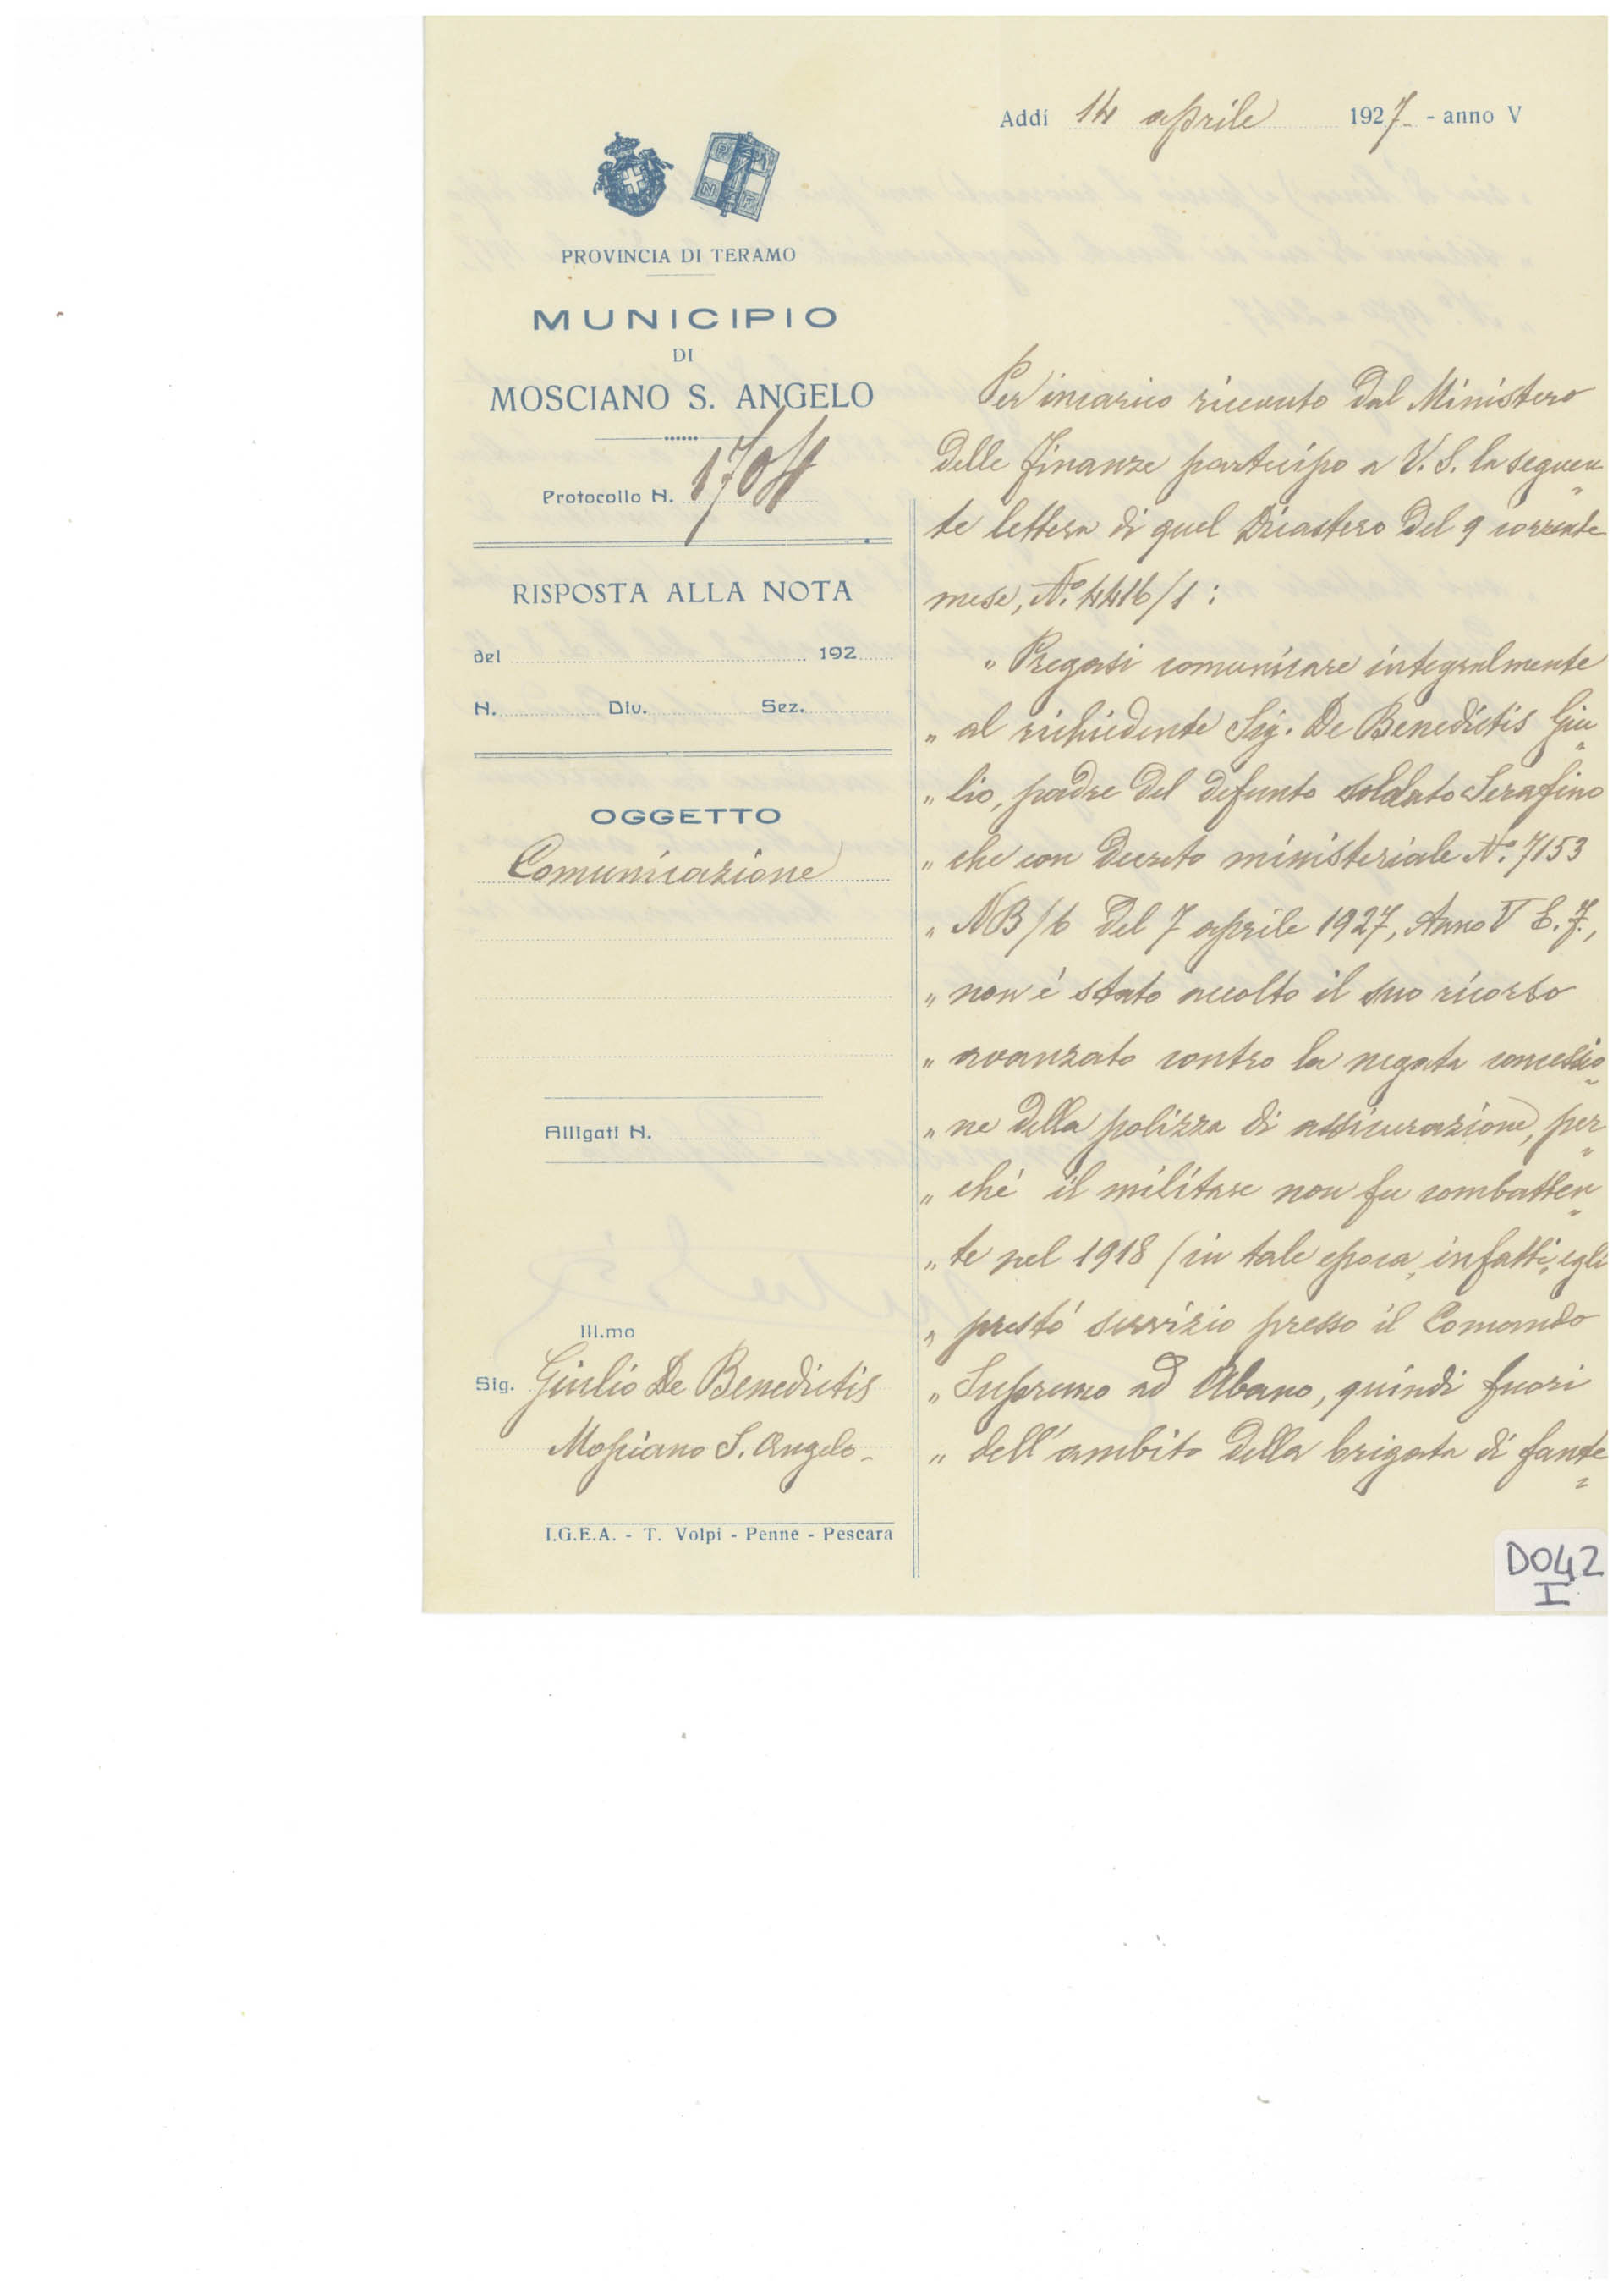 Addì 14 aprile 1927 - anno V
PROVINCIA DI TERAMO
MUNICIPIO
DI
MOSCIANO S. ANGELO
Protocollo N. 1704
RISPOSTA ALLA NOTA
del 192
N. Div. Sez.
OGGETTO
Comunicazione
Alligati N.
Ill.mo
Sig. Giulio De Benedictis
Mosciano S. Angelo -
I.G.E.A. - T. Volpi - Penne - Pescara
Per incarico ricevuto dal Ministero
delle Finanze partecipo a V. S. la seguen
te lettera di quel Dicastero del 9 corrente
mese, N.° 4416/1 :
" Pregasi comunicare integralmente
" al richiedente Sig. De Benedictis Giu
" lio, padre del defunto soldato Serafino
" che con Decreto ministeriale N.° 7153
" NB/6 del 7 aprile 1927, Anno V E. F.,
" non è stato accolto il suo ricorso
" avanzato contro la negata concessio
" ne della polizza di assicurazione, per
" ché il militare non fu combatten
" te nel 1918 (in tale epoca, infatti, egli
" prestò servizio presso il Comando
" Supremo ad Abano, quindi fuori
" dell'ambito della brigata di fante
D042
I